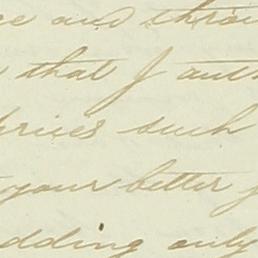 and throu
that I auth
prices such
your better j
dding only